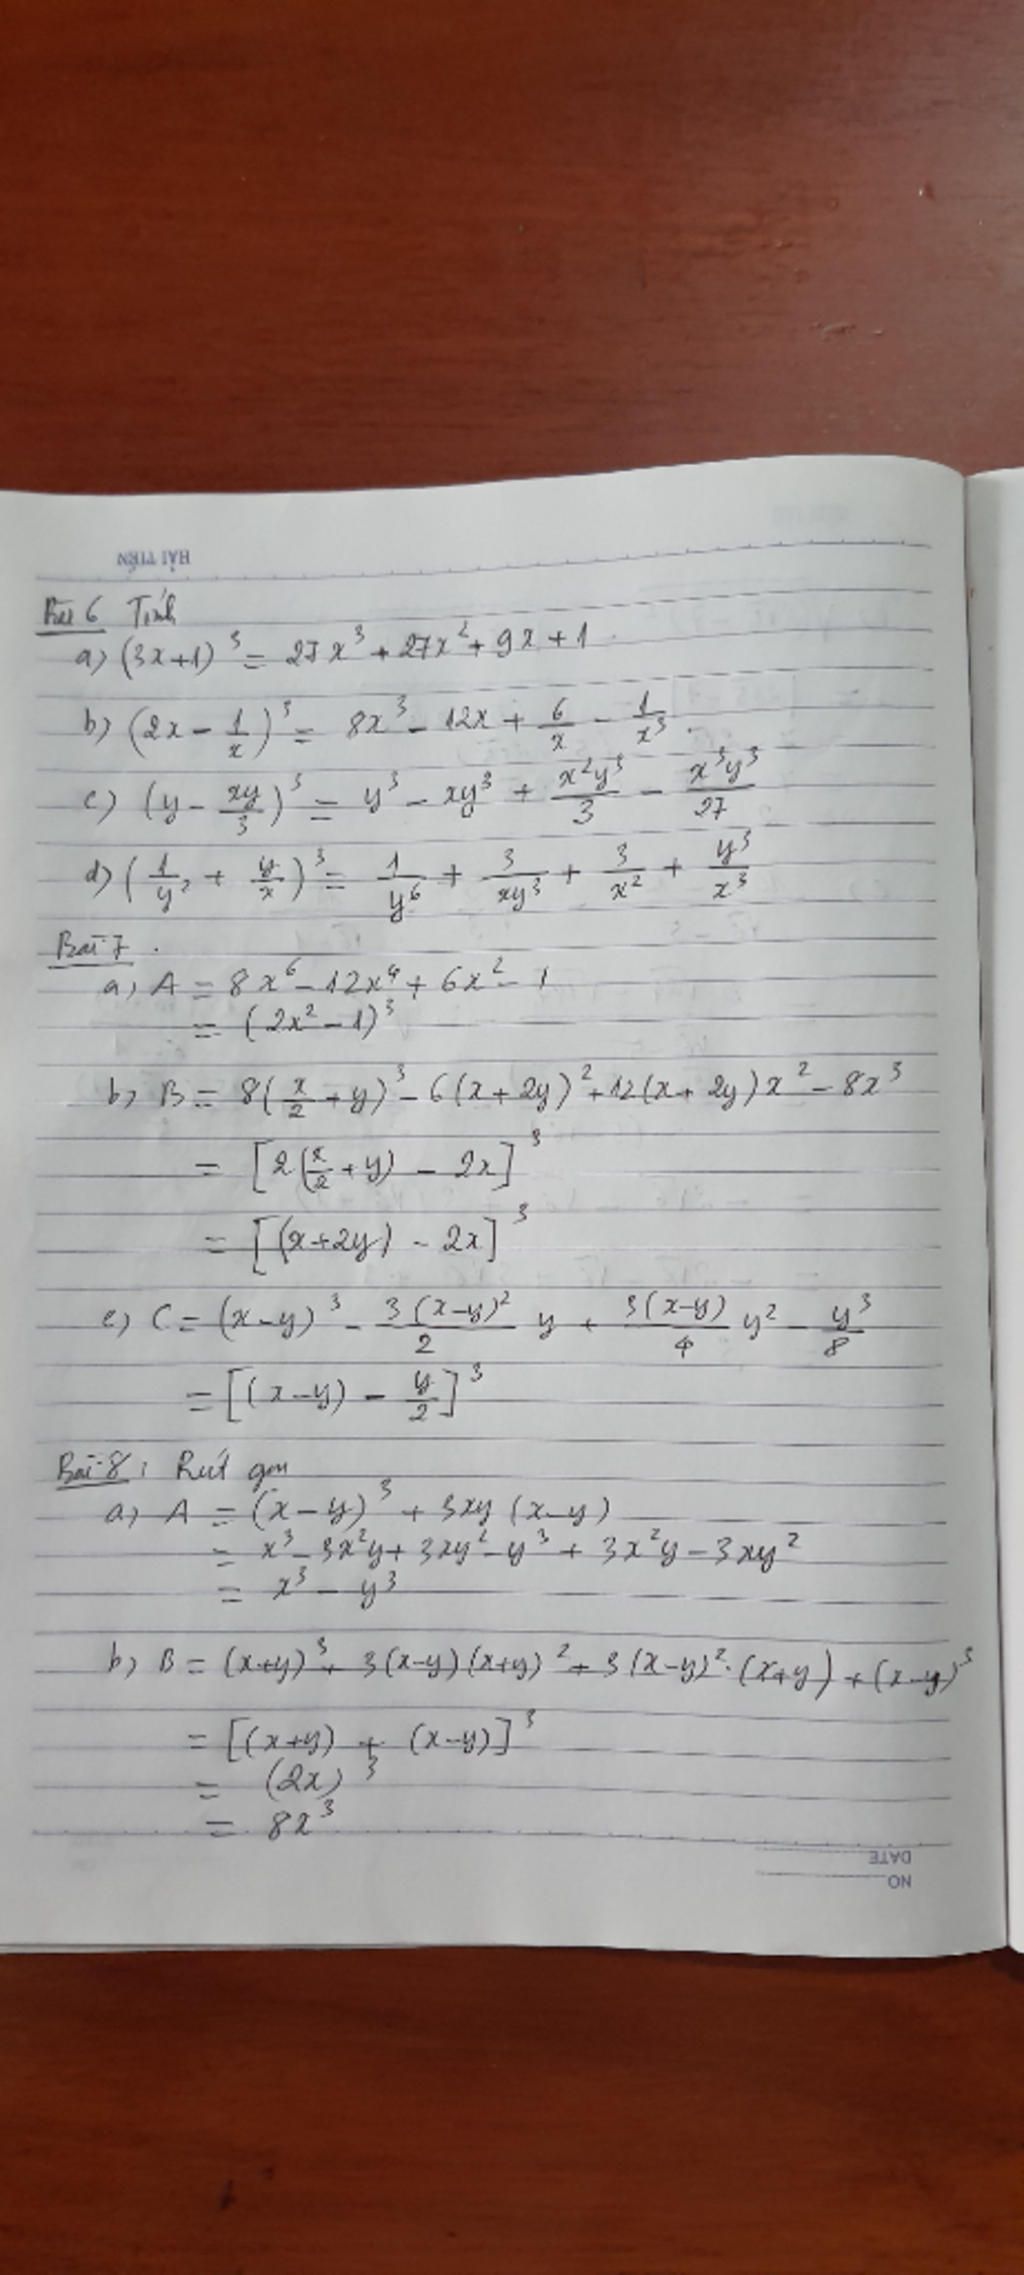 HẢI TIẾN
Bài 6 Tính
a) (3x+1)³ = 27x³ + 27x² + 9x + 1
b) (2x - 1/x)³ = 8x³ - 12x + 6/x - 1/x³.
c) (y - xy/3)³ = y³ - xy³ + x²y³/3 - x³y³/27
d) (1/y² + y/x)³ = 1/y⁶ + 3/xy³ + 3/x² + y³/x³
Bài 7.
a) A = 8x⁶ - 12x⁴ + 6x² - 1
= (2x² - 1)³
b) B = 8(x/2 + y)³ - 6(x + 2y)² + 12(x + 2y)x² - 8x³
= [2(x/2 + y) - 2x]³
= [(x+2y) - 2x]³
c) C = (x-y)³ - 3(x-y)²/2 y + 3(x-y)/4 y² - y³/8
= [(x-y) - y/2]³
Bài 8: Rút gọn
a) A = (x-y)³ + 3xy(x-y)
= x³ - 3x²y + 3xy² - y³ + 3x²y - 3xy²
= x³ - y³
b) B = (x+y)³ + 3(x-y)(x+y)² + 3(x-y)².(x+y) + (x-y)³
= [(x+y) + (x-y)]³
= (2x)³
= 8x³
DATE
NO